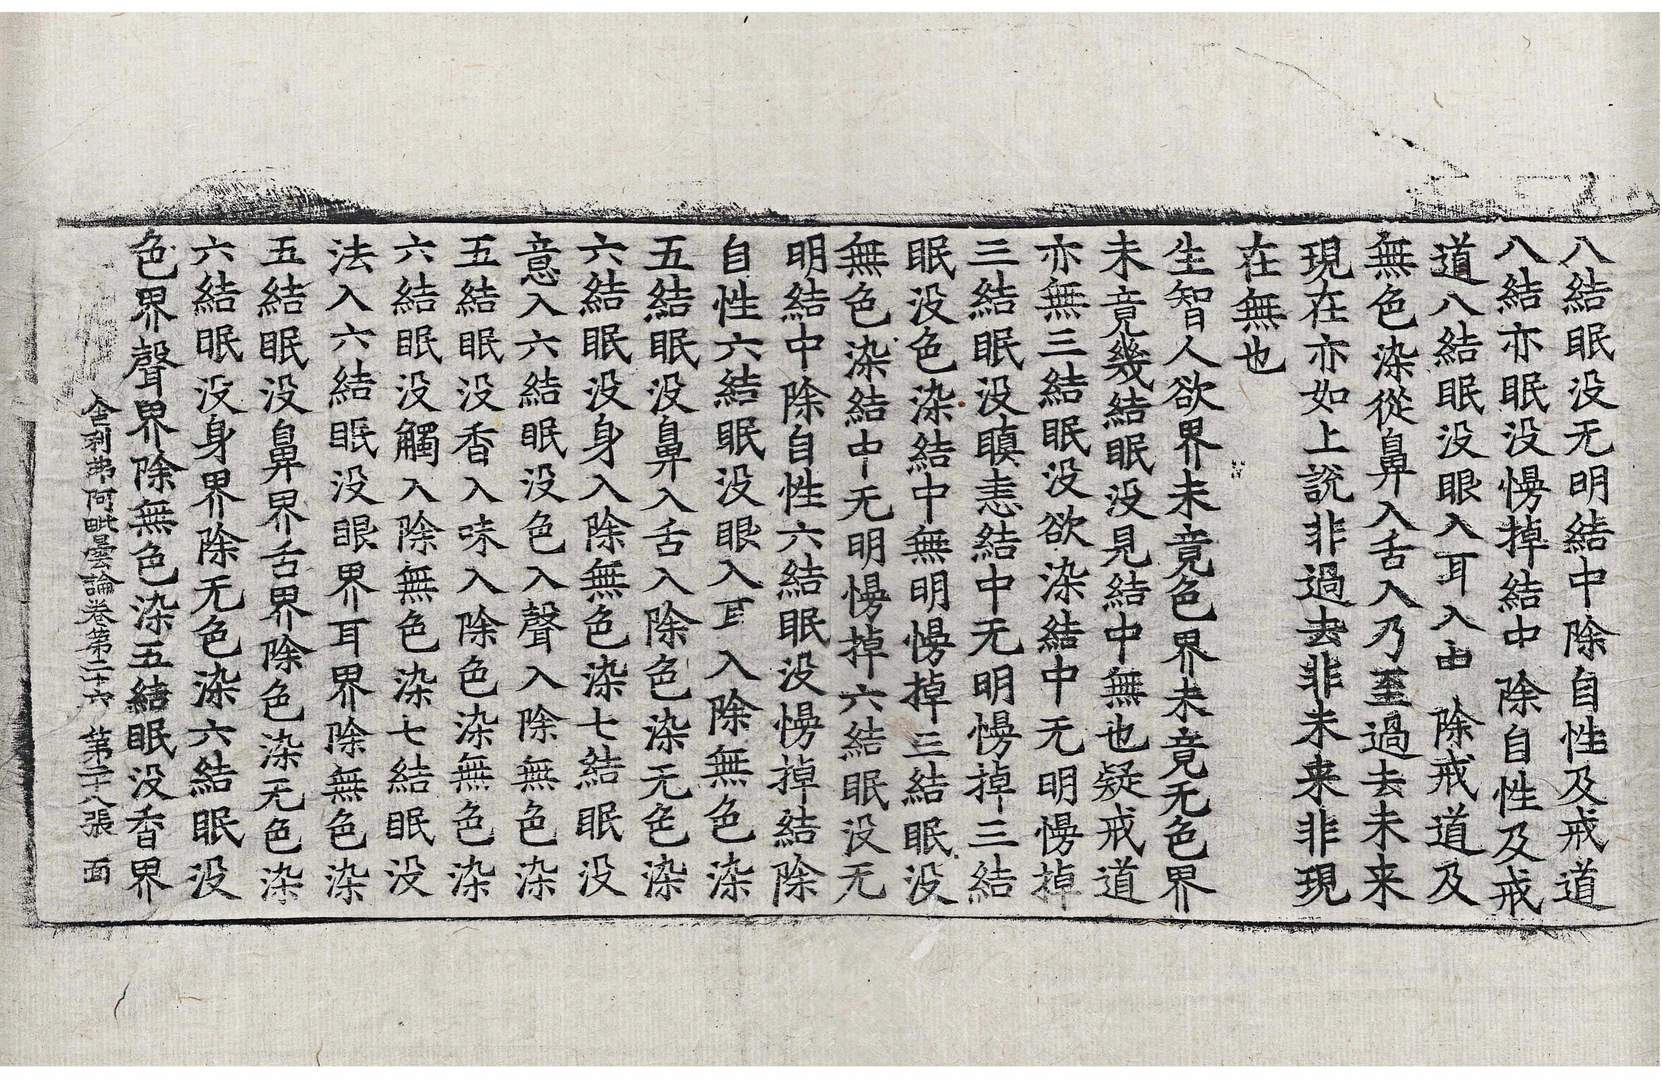 八結眠没无明結中除自性及戒道
八結亦眠没慢掉結中除自性及戒
道八結眠没眼入耳入由除戒道及
無色染從鼻入舌入乃至過去未来
現在亦如上說非過去非未来非現
在無也
生智人欲界未竟色界未竟无色界
未竟幾結眠没見結中無也疑戒道
亦無三結眠没欲染結中无明慢掉
三結眠没瞋恚結中无明慢掉三結
眠没色染結中無明慢掉三結眠没
無色染結中无明慢掉六結眠没无
明結中除自性六結眠没慢掉結除
自性六結眠没眼入耳入除無色染
五結眠没鼻入舌入除色染无色染
六結眠没身入除無色染七結眠没
意入六結眠没色入聲入除無色染
五結眠没香入味入除色染無色染
六結眠没觸入除無色染七結眠没
法入六結眠没眼界耳界除無色染
五結眠没鼻界舌界除色染无色染
六結眠没身界除无色染六結眠没
色界聲界除無色染五結眠没香界
舍利弗阿毗曇論卷第二十六 第二十八張 面